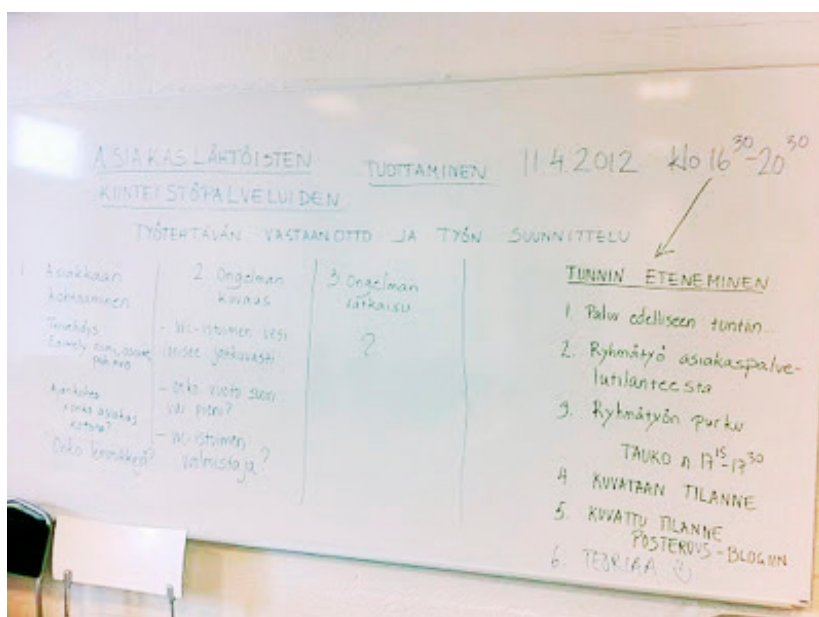 ASIAKASLÄHTÖISTEN TUOTTAMINEN 11.4.2012 klo 16³⁰-20³⁰
KIINTEISTÖPALVELUIDEN
TYÖTEHTÄVÄN VASTAANOTTO JA TYÖN SUUNNITTELU
1. Asiakkaan
kohtaaminen
Tervehdys
Esittely nimi, osoite,
puh.nro
Ajankohta
onko asiakas
kotona?
Onko lemmikkejä?
2. Ongelman
kuvaus
- WC-istuimen vesi
jatkuvasti
- onko vuoto suuri
vai pieni?
- WC-istuimen
valmistaja?
3. Ongelman
ratkaisu
?
TUNNIN ETENEMINEN
1. Paluu edelliseen tuntiin
2. Ryhmätyö asiakaspalve-
lutilanteesta
3. Ryhmätyön purku
TAUKO n. 17¹⁵-17³⁰
4. KUVATAAN TILANNE
5. KUVATTU TILANNE
POSTEROUS-BLOGIIN
6. TEORIAA ☺